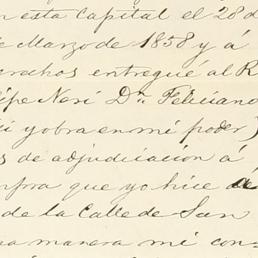 n esta Capital el 28 d
e Marzo de 1858 y á
erechos entregué al R
lipe Neri Dn. Feliciano
i y obra en mi poder)
s de adjudicacion á
nfra que yo hice á
de la Calle de San
na manera mi con=